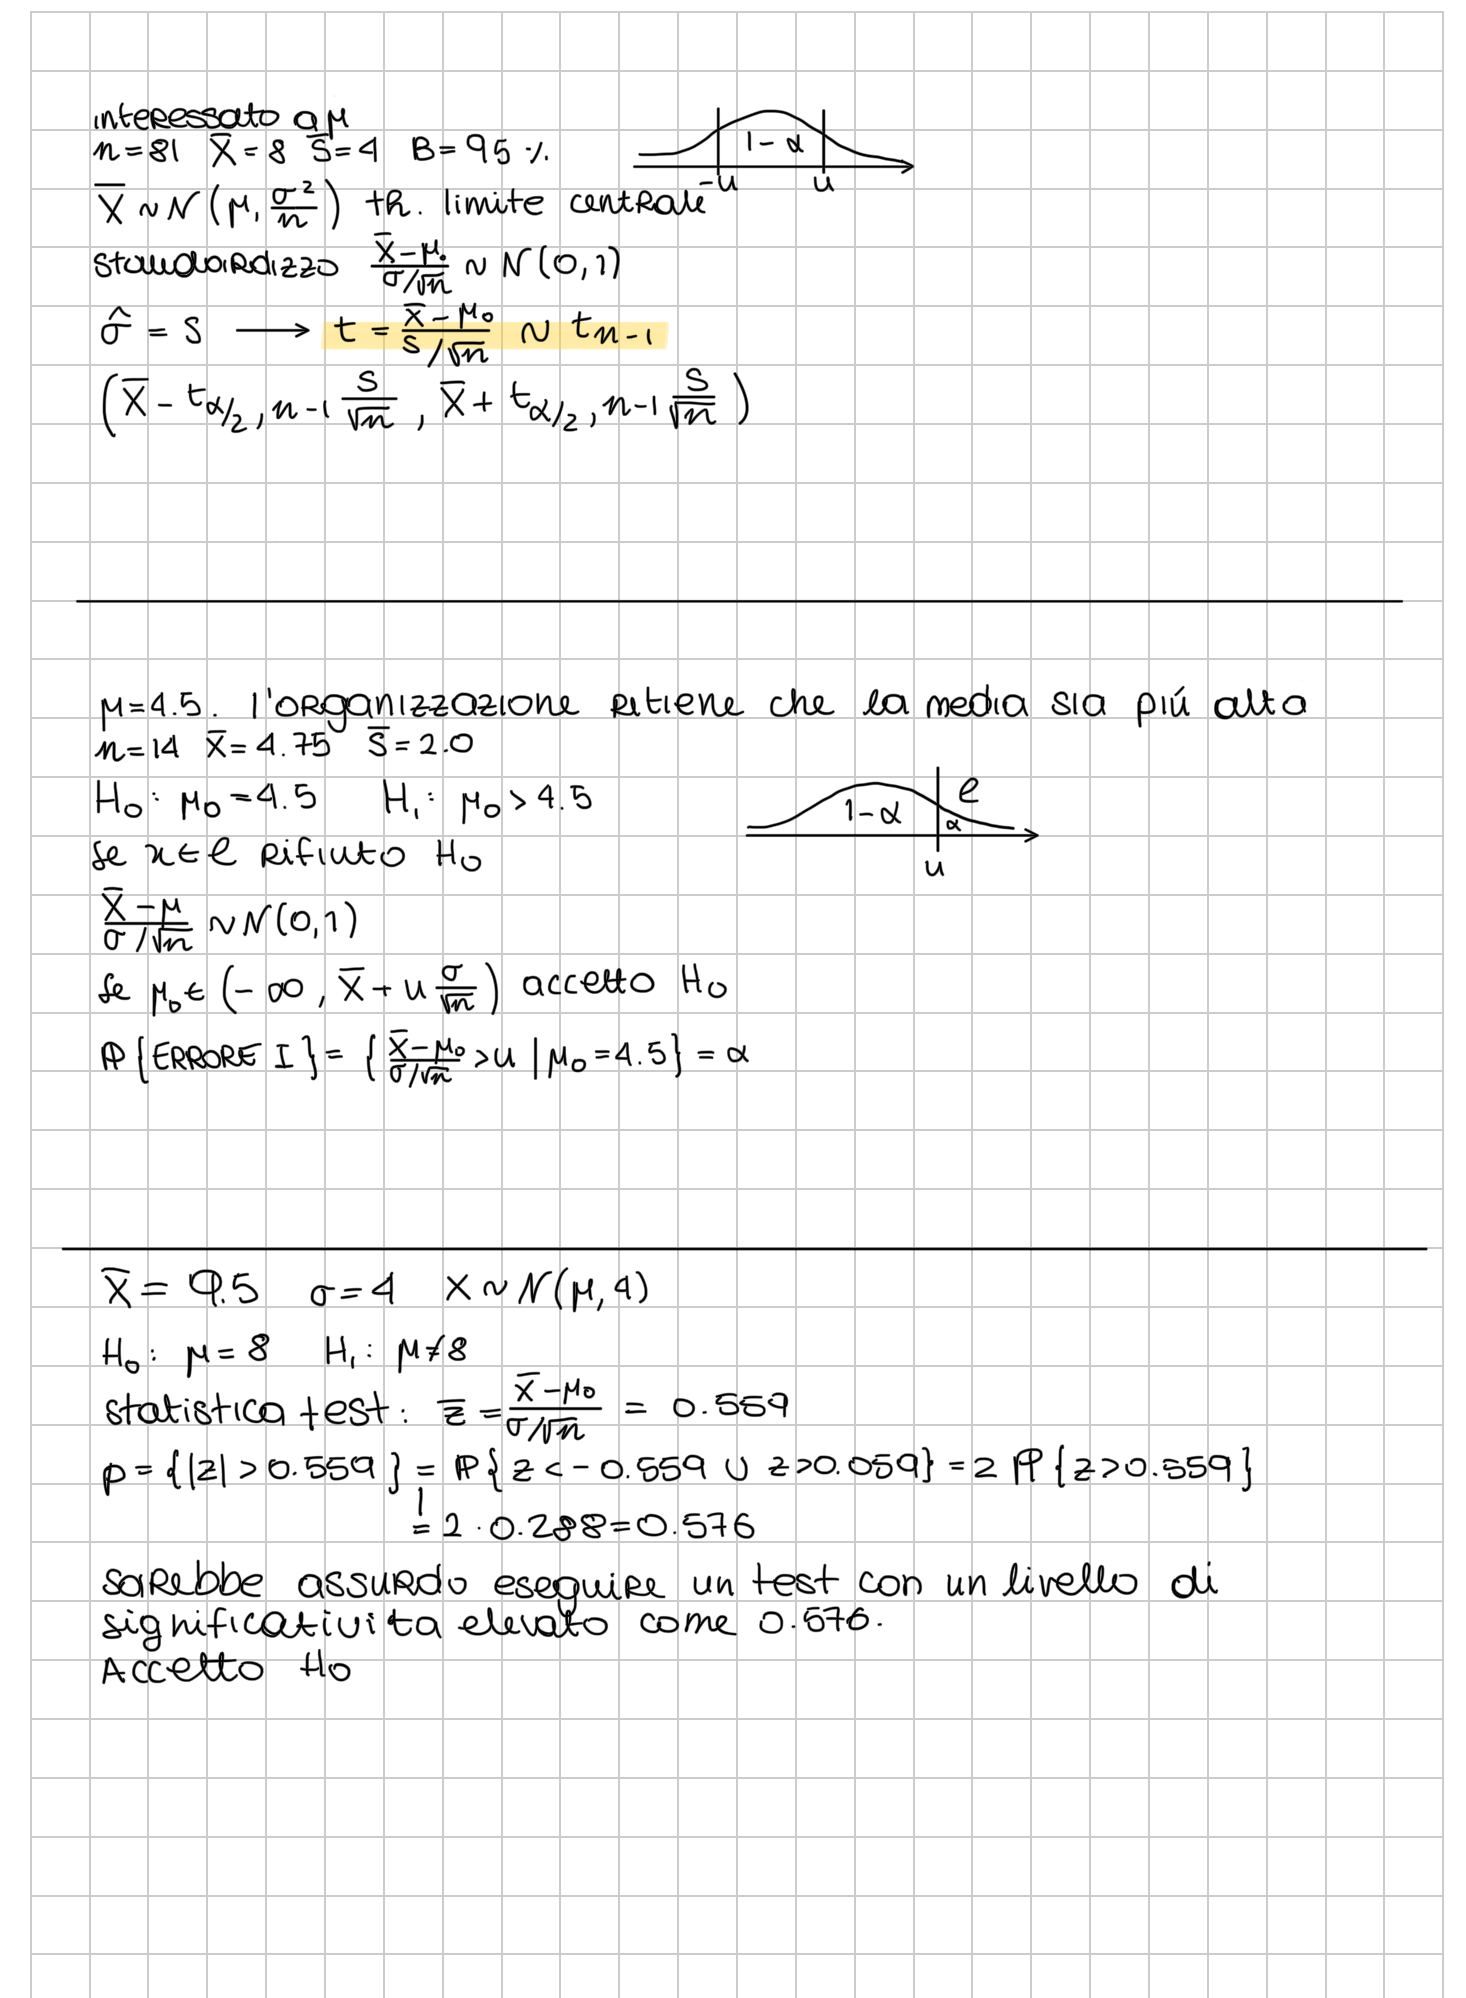 interessato a μ
n=81 X̄=8 S̄=4 B=95 %
1-α
-u u
X̄ ~ N(μ, σ²/n) th. limite centrale
standardizzo (X̄-μ₀)/(σ/√n) ~ N(0,1)
σ̂ = S ⟶ t = (X̄-μ₀)/(S/√n) ~ tn-1
(X̄ - tα/2, n-1 S/√n , X̄ + tα/2, n-1 S/√n )
μ=4.5. l'organizzazione ritiene che la media sia piú alta
n=14 X̄=4.75 S̄=2.0
H₀: μ₀=4.5 H₁: μ₀>4.5
1-α α C
u
se x∈C rifiuto H₀
(X̄-μ)/(σ/√n) ~ N(0,1)
se μ₀∈(-∞, X̄+u σ/√n) accetto H₀
ℙ{ERRORE I}= {(X̄-μ₀)/(σ/√n) >u | μ₀=4.5} = α
X̄= 9.5 σ=4 X ~ N(μ,4)
H₀: μ=8 H₁: μ≠8
statistica test: z̄ = (X̄-μ₀)/(σ/√n) = 0.559
p={|z|>0.559} = ℙ{z<-0.559 ∪ z>0.059} = 2 ℙ{z>0.559}
= 2 · 0.288=0.576
sarebbe assurdo eseguire un test con un livello di
significativita elevato come 0.576.
Accetto H₀